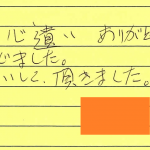 心遣い ありがと
じました。
いして頂きました。